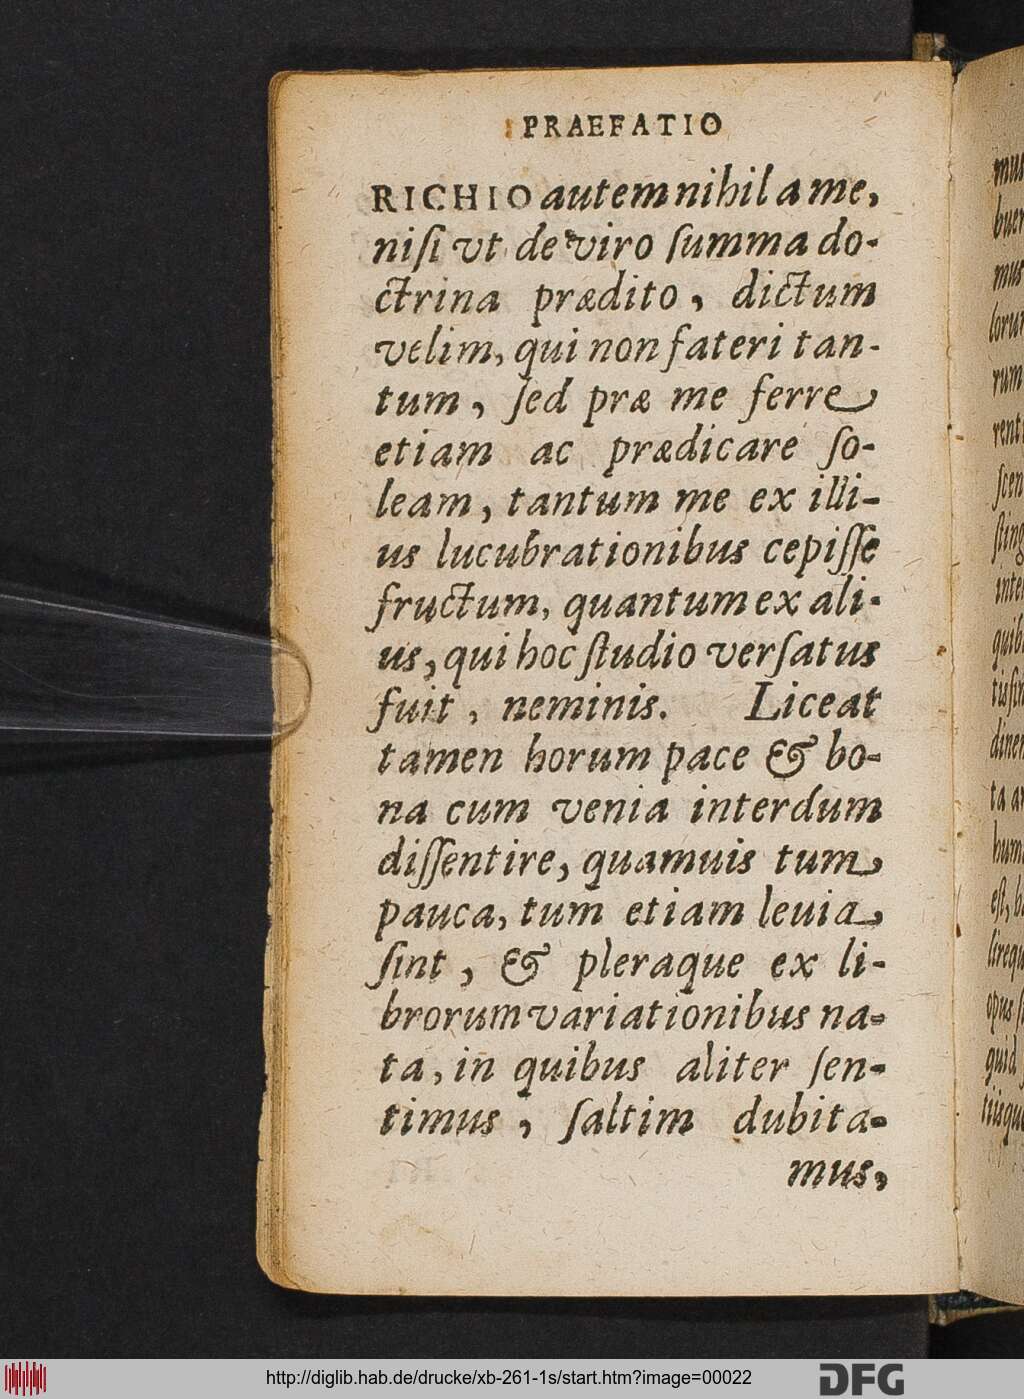 PRAEFATIO
RICHIO autem nihil a me,
niſi vt de viro ſumma do-
ctrina prædito, dictum
velim, qui non fateri tan-
tum, ſed præ me ferre
etiam ac prædicare ſo-
leam, tantum me ex illi-
us lucubrationibus cepiſſe
fructum, quantum ex ali-
us, qui hoc ſtudio verſatus
fuit, neminis. Liceat
tamen horum pace & bo-
na cum venia interdum
diſſentire, quamuis tum
pauca, tum etiam leuia
ſint, & pleraque ex li-
brorum variationibus na-
ta, in quibus aliter ſen-
timus, ſaltim dubita-
mus,
http://diglib.hab.de/drucke/xb-261-1s/start.htm?image=00022
DFG